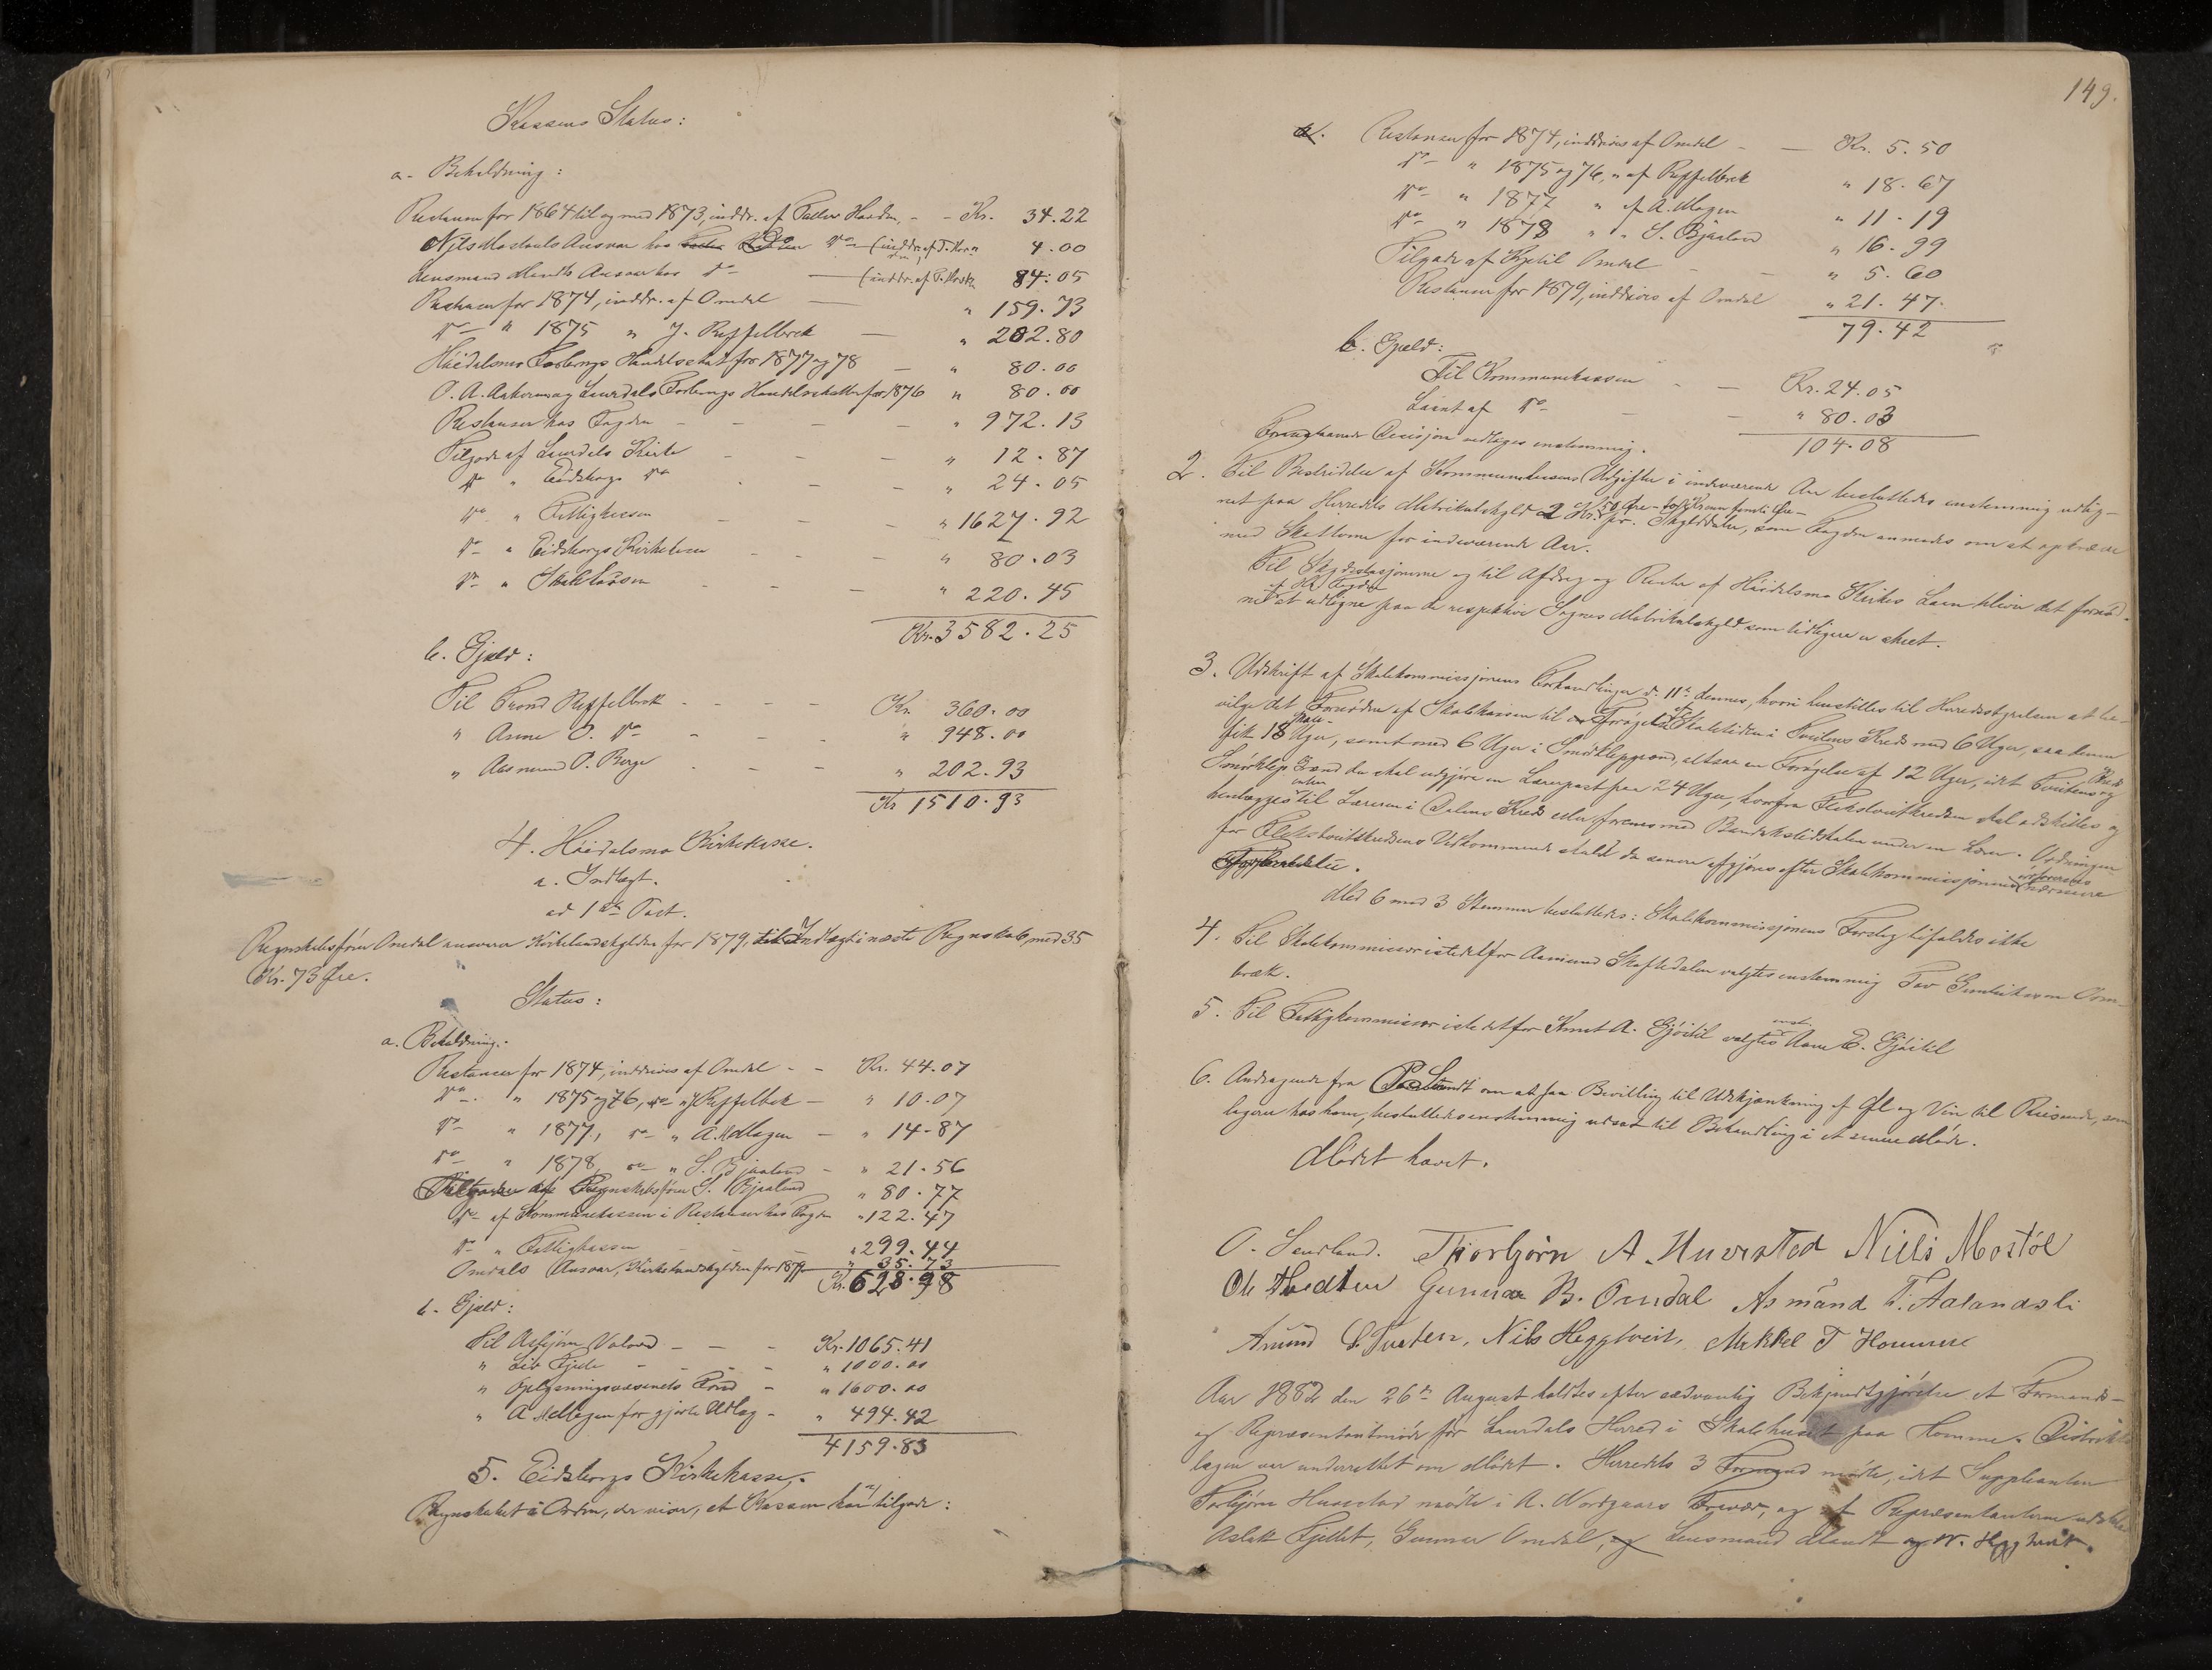 Kassens Status:
a. Behaldning:
Restanser for 1864 til og med 1873, inddr. af Halvor - - Kr. 34.22
Nils Mostøls Ansvar hos Do (inddr. af 4.00
Lensmand Ansvar hos Do — (inddr. af 84.05
Restanser for 1874, inddr. af Omdal — " 159.73
Do — " 1875 " J. Reppelbrek — " 202.80
Høidalsmo Forbrugs Handelsskat for 1877 og 78 — " 80.00
O. A. og Laurdals Forbrugs Handelsskatter for 1876 " 80.00
Restanser hos Fogden - - - - " 972.13
Tilgode af Laurdals Kirke - - - " 12.87
Do " Eidsborgs Do - - - " 24.05
Do " Fattigkassen - - - " 1627.92
Do " Eidsborgs Kirkekasse - - - " 80.03
Do " Skolekassen - - - " 220.45
Kr. 3582.25
b. Gjæld:
Til Trond Reppelbrek - - - - Kr. 360.00
" Anne O. Do - - - " 948.00
" Aasmund O. Berge - - - " 202.93
Kr 1510.93
4. Høidalsmo Kirkekasse.
a. Indtægt.
ad 1ste Post.
Regnskabsfører Omdal ansvarer Kirkelandskylden for 1879, til Indtægt i næste Regnskab, med 35
Kr. 73 Øre.
Status:
a. Behaldning:
Restanser for 1874, inddrives af Omdal - - Kr. 44.07
Do " 1875 og 76, Do " J Reppelbek — " 10.07
Do " 1877, Do " A. Mlagen — " 14-87
Do " 1878, Do " S. Bjaaland - " 21.56
Tilgode af Regnskabsfører S. Bjaaland " 80.77
Do af Kommunekassen i Restanser hos Fogden " 122.47
Do " Fattigkassen - - - " 299.44
Omdals Ansvar, Kirkelandskylden for 1879 " 35.73
Kr. 628.98
b. Gjæld:
Til Asbjørn Valand - - - Kr. 1065.41
" Liv - - - - " 1000.00
" Oplysningsvæsenets Fond - " 1600.00
" A Mellegen for gjorte Udlæg - " 494.42
4159.83
5. Eidsborgs Kirkekasse.
Regnskabet i Orden, der viser, at Kassen har tilgode:
149.
a. Restanser for 1874, inddrives af Omdal - — Kr. 5.50
Do — " 1875 og 76, " af Reppelbrek " 18.67
Do — " 1877 " af A. Mlagen " 11.19
Do " 1878 " " S. Bjaaland " 16.99
Tilgode af Kjetil Omdal - - " 5.60
Restanser for 1879, inddrives af Omdal " 21.47.
79.42
b. Gjæld:
Til Kommunekassen - — Kr. 24.05
Laant af Do — — " 80.03
104.08
Foregaaende Decisjon vedtages enstemmig.
2. Til Bestridelse af Kommunekassens Udgifter i indeværende Aar besluttedes enstemmig udlig-
net paa Herredets Matrikulskyld 2 Kr. 50 Øre - to Kroner femti Øre - pr. Skylddaler, som Fogden anmodes om at opkræve
med Skatterne for indeværende Aar.
Til Skydsstasjonerne og til Afdrag og Renter af Høidalsmo Kirkes Laan bliver det fornød-
ne af Hr. Fogden at udligne paa de respektive Sognes Matrikulskyld som tidligere er skeet.
3. Udskrift af Skolekommissjonens Forhandlinger d. 11te dennes, hvori henstilles til Herredsstyrelsen at be-
vilge det Fornødne af Skolekassen til Forøgelse af Skoletiden i Tveitens Kreds med 6 Uger, saa denne
fik 18 Uger, samt med 6 Uger i Smørkleppgrænd, altsaa en Forøgelse af 12 Uger, idet Tveitens Kreds og
Smørklep Grænd da skal udgjøre en Lærerpost paa 24 Uger, hvorfra Flekstveitkredsen skal adskilles og
henlægges enten til Læreren i Dalens Kreds eller forenes med Bandakslidskolen under en Lærer. Ordningen
for Flekstveitkredsens Vedkommende skulde da senere afgjøres efter Skolekommissjonens nærmere
Med 6 mod 3 Stemmer besluttedes: Skolekommissjonens Forslag bifaldes ikke
4. Til Skolekommissær istedetfor Aamund Skaftedalen valgtes enstemmig Tor Gundersen Om-
bræk.
5. Til Fattigkommissær istedetfor Knut A. Gjøitil valgtes enst. Aane E. Gjøitil
6. Andragende fra om at faa Bevilling til Udskjænkning af Øl og Vin til Reisende, som
logerer hos ham, besluttedes enstemmig udsat til Behandling i et senere Møde.
Mødet hævet.
O. Laurland. Thorbjørn A. Huvestad Niels Mostøl
Gunnar B. Omdal Asmånd T. Aalandsli
Åmund S. Tveten, Nils Heggtveit, Mikkel T Homme
Aar 1882 den 26de August holdtes efter sædvanlig Bekjendtgjørelse et Formands-
og Repræsentantmøde for Laurdals Herred i Skolehuset paa Homme. Distrikts
lægen var underrettet om Mødet. Herredets 3 Formænd mødte, idet Suppleanten
Torbjørn Huvestad mødte i A. Nordgaars Fravær, og af Repræsentanterne
Aslak Fjellet, Gunnar Omdal, og Lensmand og N. Heggtveit.